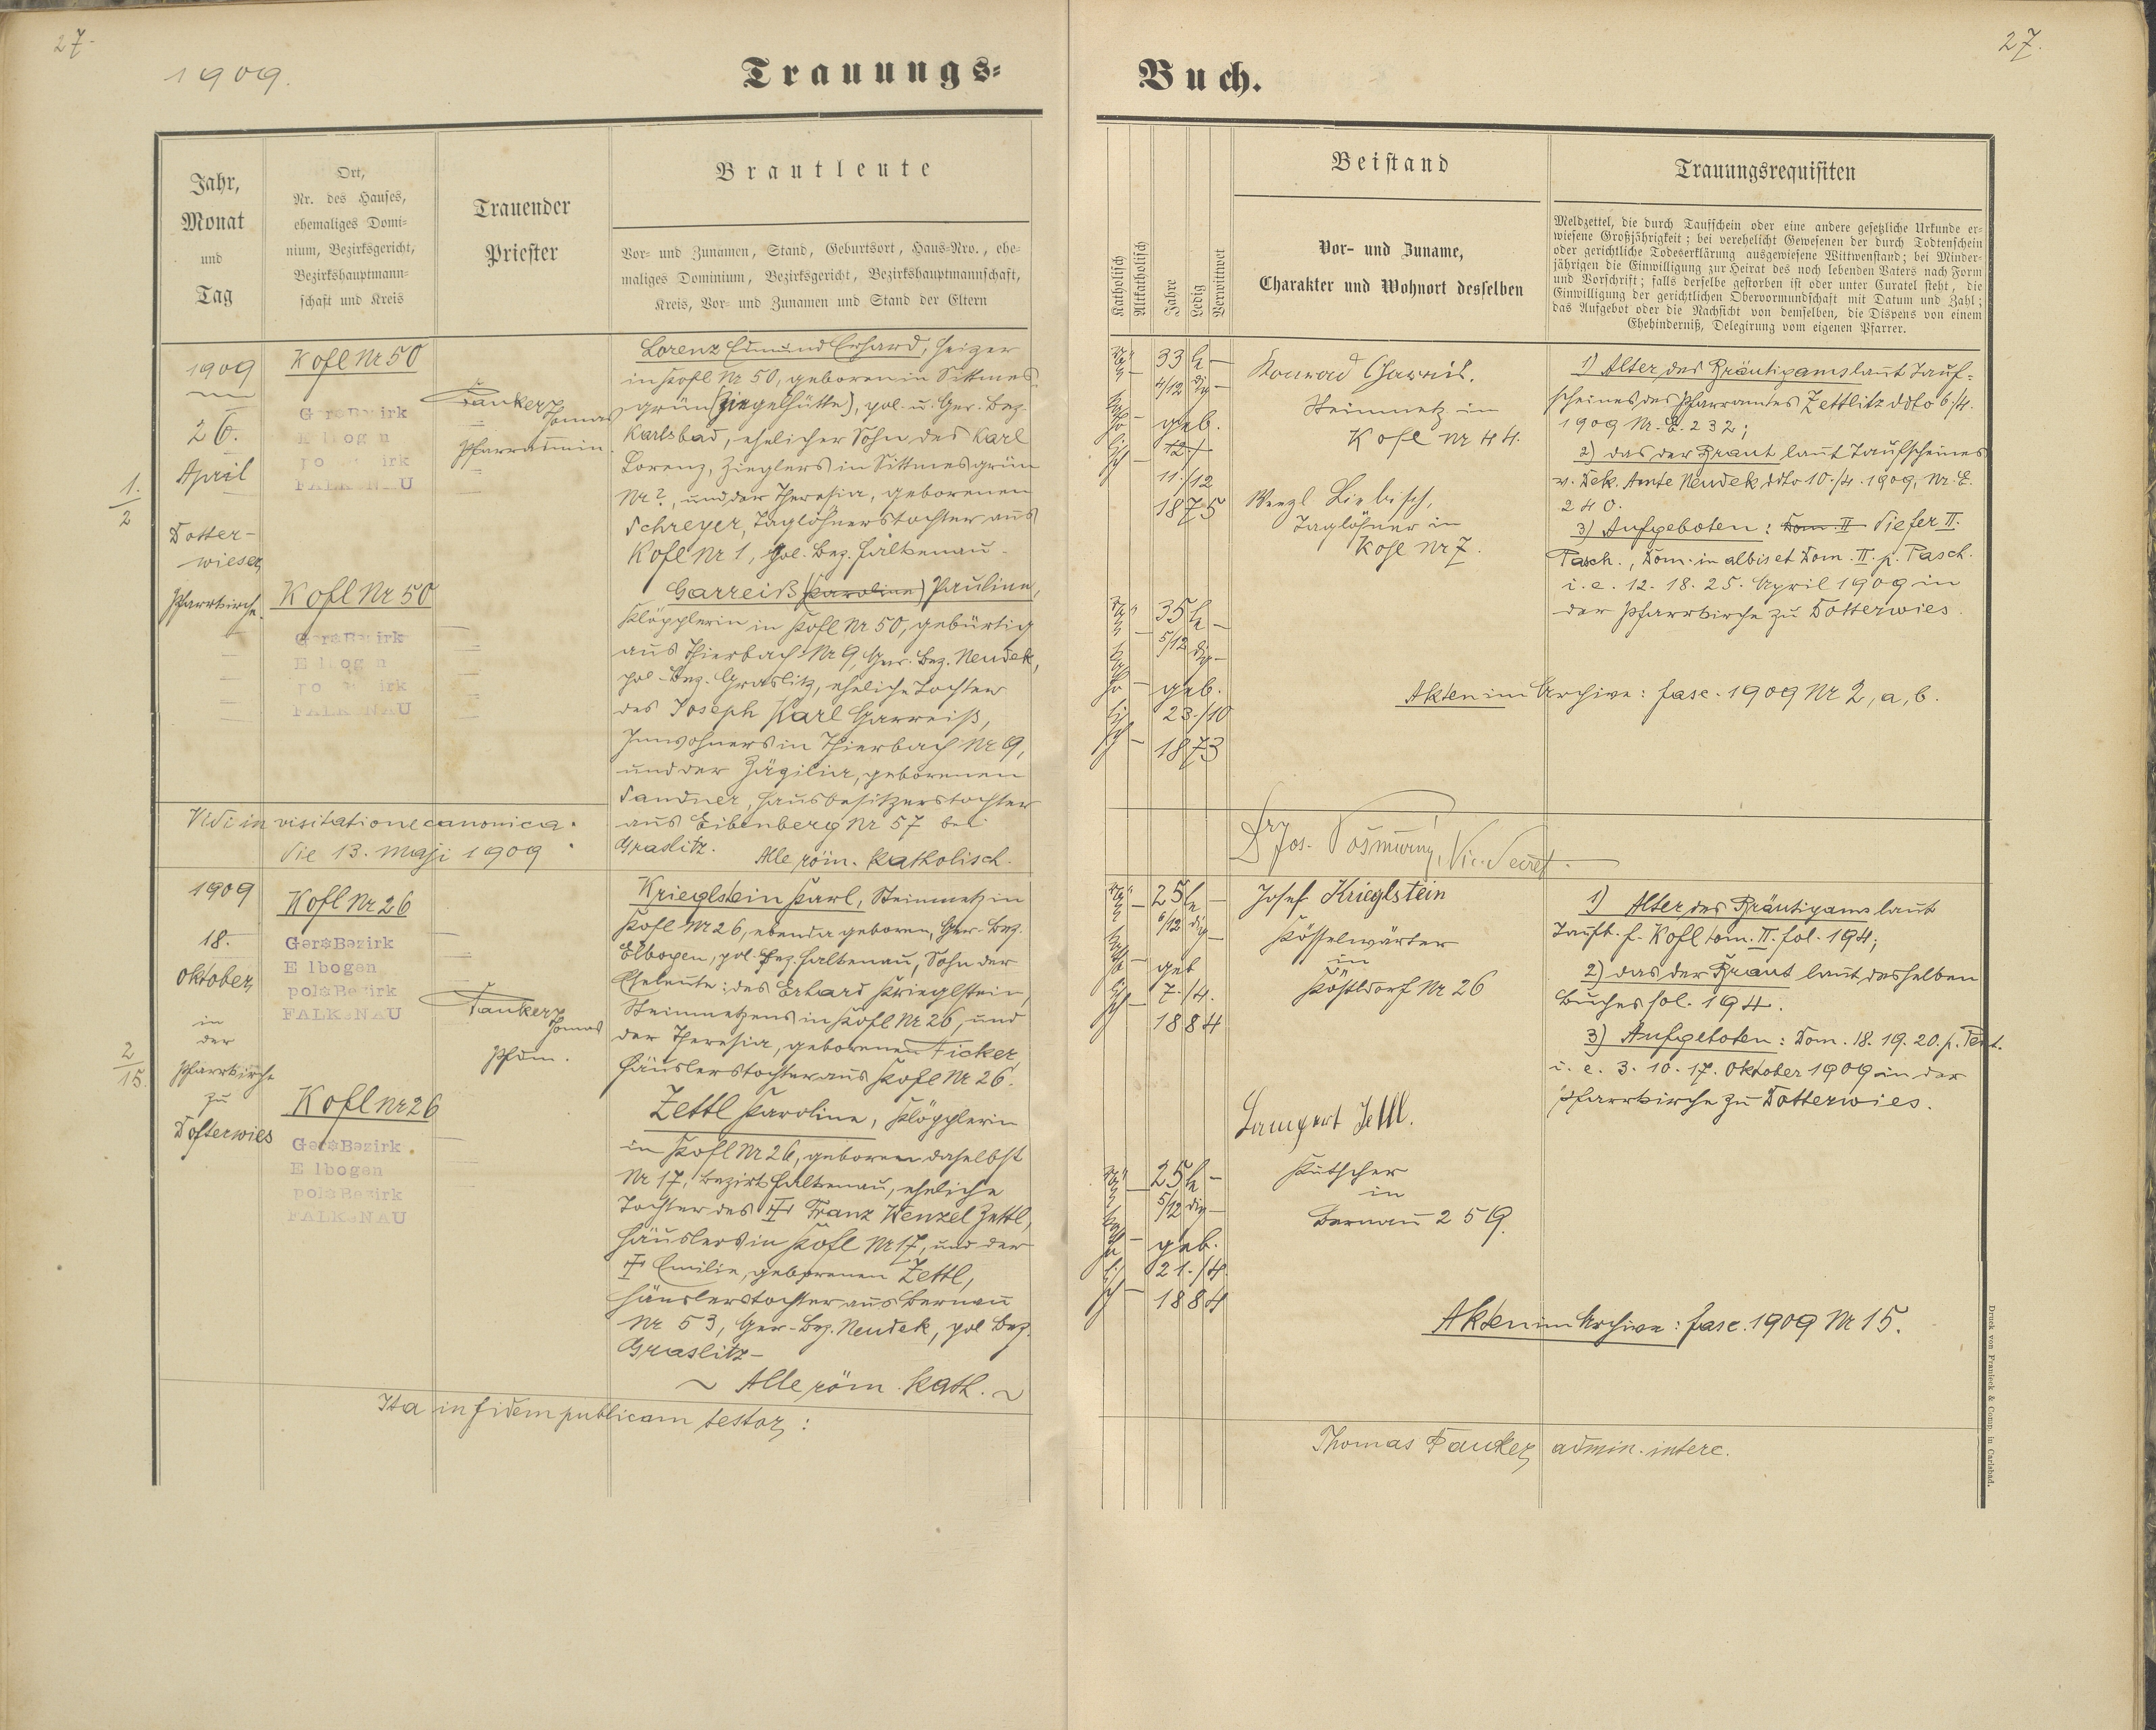 27.
1909.
Trauungs-
Jahr,
Monat
und
Tag
Ort,
Nr. des Hauses,
ehemaliges Domi-
nium, Bezirksgericht,
Bezirkshauptmann-
schaft und Kreis
Trauender
Priester
Brautleute
Vor- und Zunamen, Stand, Geburtsort, Haus-Nro., ehe-
maliges Dominium, Bezirksgericht, Bezirkshauptmannschaft,
Kreis, Vor- und Zunamen und Stand der Eltern
1.
2
1909
26.
April
Dotter-
wieser
Pfarrkirche.
Kofl Nr 50
FALKENAU
Fanker
Thomas
Pfarradmin.
Lorenz Edmund Erhard, Heizer
in Kofl Nr 50, geboren in Sittmes-
grün (Ziegelhütte), pol. u. Ger. Bez.
Karlsbad, ehelicher Sohn des Karl
Lorenz, Zieglers in Sittmesgrün
Nr ?, und der Theresia, geborenen
Schreyer, Taglöhnerstochter aus
Kofl Nr 1, pol. Bez. Falkenau.
Kofl Nr 50
FALKENAU
Garreiß (Karoline) Pauline,
Klöpplerin in Kofl Nr 50, gebürtig
aus Thierbach Nr 9, Ger. Bez. Neudek,
pol. Bez. Graslitz, eheliche Tochter
des Joseph Karl Garreiß,
Inwohners in Thierbach Nr 9,
und der Zäzilia, geborenen
Sandner, Hausbesitzerstochter
aus Eibenberg Nr 57 bei
Graslitz. Alle röm. katholisch.
Vidi in visitatione canonica.
die 13. Maji 1909
2
15.
1909
18.
Oktober,
in
der
Pfarrkirche
zu
Dotterwies
Kofl Nr 26
Ger: Bezirk
Elbogen
pol: Bezirk
FALKENAU
Fanker
Thomas
Pfdm.
Krieglstein Karl, Steinmetz in
Kofl Nr 26, ebenda geboren, Ger. Bez.
Elbogen, pol. Bez. Falkenau, Sohn der
Eheleute: des Erhard Krieglstein,
Steinmetzens in Kofl Nr 26, und
der Theresia, geborenen Ficker
Häuslerstochter aus Kofl Nr 26.
Kofl Nr 26
Ger: Bezirk
Elbogen
pol: Bezirk
FALKENAU
Zettl Karoline, Klöpplerin
in Kofl Nr 26, geboren daselbst
Nr 17, Bezirk Falkenau, eheliche
Tochter des ‡ Franz Wenzel Zettl,
Häuslers in Kofl Nr 17, und der
‡ Emilie, geborenen Zettl,
Häuslerstochter aus Bernau
Nr 53, Ger. Bez. Neudek, pol Bez.
Graslitz –
~ Alle röm. kath. ~
Ita in fidem publicam testor:
27.
Buch.
Katholisch
Altkatholisch
Jahre
Ledig
Verwittwet
Beistand
Vor- und Zuname,
Charakter und Wohnort desselben
Trauungsrequisiten
Meldzettel, die durch Taufschein oder eine andere gesetzliche Urkunde er-
wiesene Großjährigkeit; bei verehelicht Gewesenen der durch Todtenschein
oder gerichtliche Todeserklärung ausgewiesene Wittwenstand; bei Minder-
jährigen die Einwilligung zur Heirat des noch lebenden Vaters nach Form
und Vorschrift; falls derselbe gestorben ist oder unter Curatel steht, die
Einwilligung der gerichtlichen Obervormundschaft mit Datum und Zahl;
das Aufgebot oder die Nachsicht von demselben, die Dispens von einem
Ehehinderniß, Delegirung vom eigenen Pfarrer.
33 le
4/12 dig
geb.
11./12
1875
Konrad
Steinmetz in
Kofl Nr 44.
Wenzl Liebisch,
Taglöhner in
Kofl Nr 7.
1) Alter des Bräutigams laut Tauf-
scheines des Pfarramtes Zettlitz ddto 6./4.
1909 Nr. E. 232;
2) das der Braut laut Taufscheines
v. Dek. Amte Neudek ddto 10./4. 1909, Nr. E.
240.
3) Aufgeboten: Dom. II die fer II.
Pasch., Dom. in albis et Dom. II. p. Pasch.
i. e. 12. 18. 25. April 1909 in
der Pfarrkirche zu Dotterwies.
35 le
5/12 dig
geb.
23./10
1873
Akten im Archive: fasc. 1909 Nr 2, a, b.
Vic. Secret.
25 le
6/12 dig
geb
7./4.
1884
Josef Krieglstein
in
Nr 26
1) Alter des Bräutigams laut
Taufb. f. Kofl tom. II. fol. 194;
2) das der Braut laut desselben
Buches fol. 194.
3) Aufgeboten: Dom. 18. 19. 20. p. Pent.
i. e. 3. 10. 17. Oktober 1909 in der
Pfarrkirche zu Dotterwies.
25 le
5/12 dig
geb.
21./4.
1884
Zettl.
Kutscher
in
Bernau 259.
Akten im Archive: fasc. 1909 Nr 15.
Thomas Fanker, admin. interc.
Druck von Franieck & Comp. in Carlsbad.